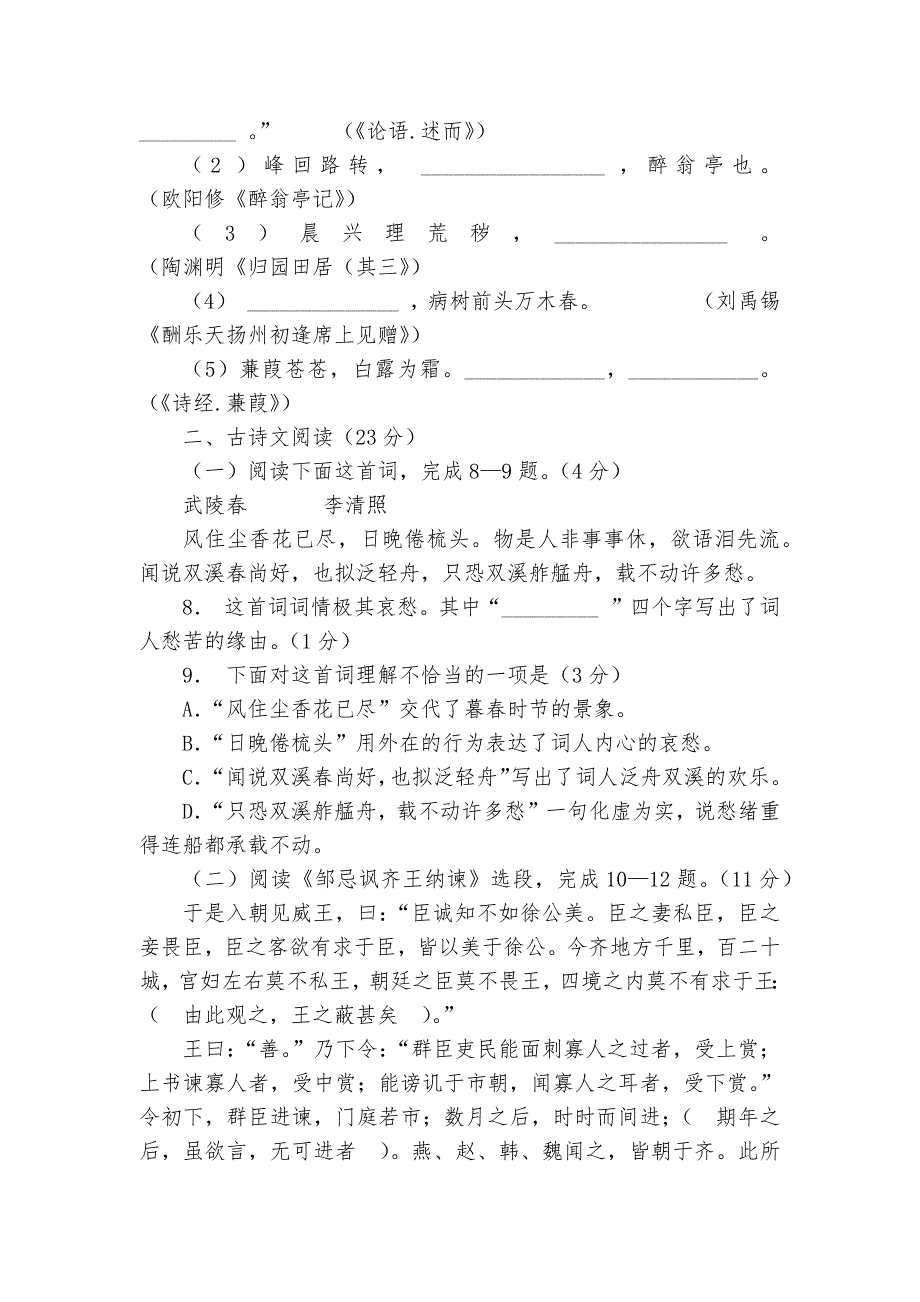 _________ 。”　（《论语.述而》）
（2）峰回路转， _________________ ，醉翁亭也。
（欧阳修《醉翁亭记》）
（3）晨兴理荒秽， ________________ 。
（陶渊明《归园田居（其三》）
（4） ______________ ，病树前头万木春。　（刘禹锡
《酬乐天扬州初逢席上见赠》）
（5）蒹葭苍苍，白露为霜。_____________，____________。
（《诗经.蒹葭》）
二、古诗文阅读（23分）
（一）阅读下面这首词，完成8—9题。（4分）
武陵春　李清照
风住尘香花已尽，日晚倦梳头。物是人非事事休，欲语泪先流。
闻说双溪春尚好，也拟泛轻舟，只恐双溪舴艋舟，载不动许多愁。
8． 这首词词情极其哀愁。其中“_________ ”四个字写出了词
人愁苦的缘由。（1分）
9． 下面对这首词理解不恰当的一项是（3分）
A．“风住尘香花已尽”交代了暮春时节的景象。
B．“日晚倦梳头”用外在的行为表达了词人内心的哀愁。
C．“闻说双溪春尚好，也拟泛轻舟”写出了词人泛舟双溪的欢乐。
D．“只恐双溪舴艋舟，载不动许多愁”一句化虚为实，说愁绪重
得连船都承载不动。
（二）阅读《邹忌讽齐王纳谏》选段，完成10—12题。（11分）
于是入朝见威王，曰：“臣诚知不如徐公美。臣之妻私臣，臣之
妾畏臣，臣之客欲有求于臣，皆以美于徐公。今齐地方千里，百二十
城，宫妇左右莫不私王，朝廷之臣莫不畏王，四境之内莫不有求于王：
（　由此观之，王之蔽甚矣　）。”
王曰：“善。”乃下令：“群臣吏民能面刺寡人之过者，受上赏；
上书谏寡人者，受中赏；能谤讥于市朝，闻寡人之耳者，受下赏。”
令初下，群臣进谏，门庭若市；数月之后，时时而间进；（　期年之
后，虽欲言，无可进者　）。燕、赵、韩、魏闻之，皆朝于齐。此所